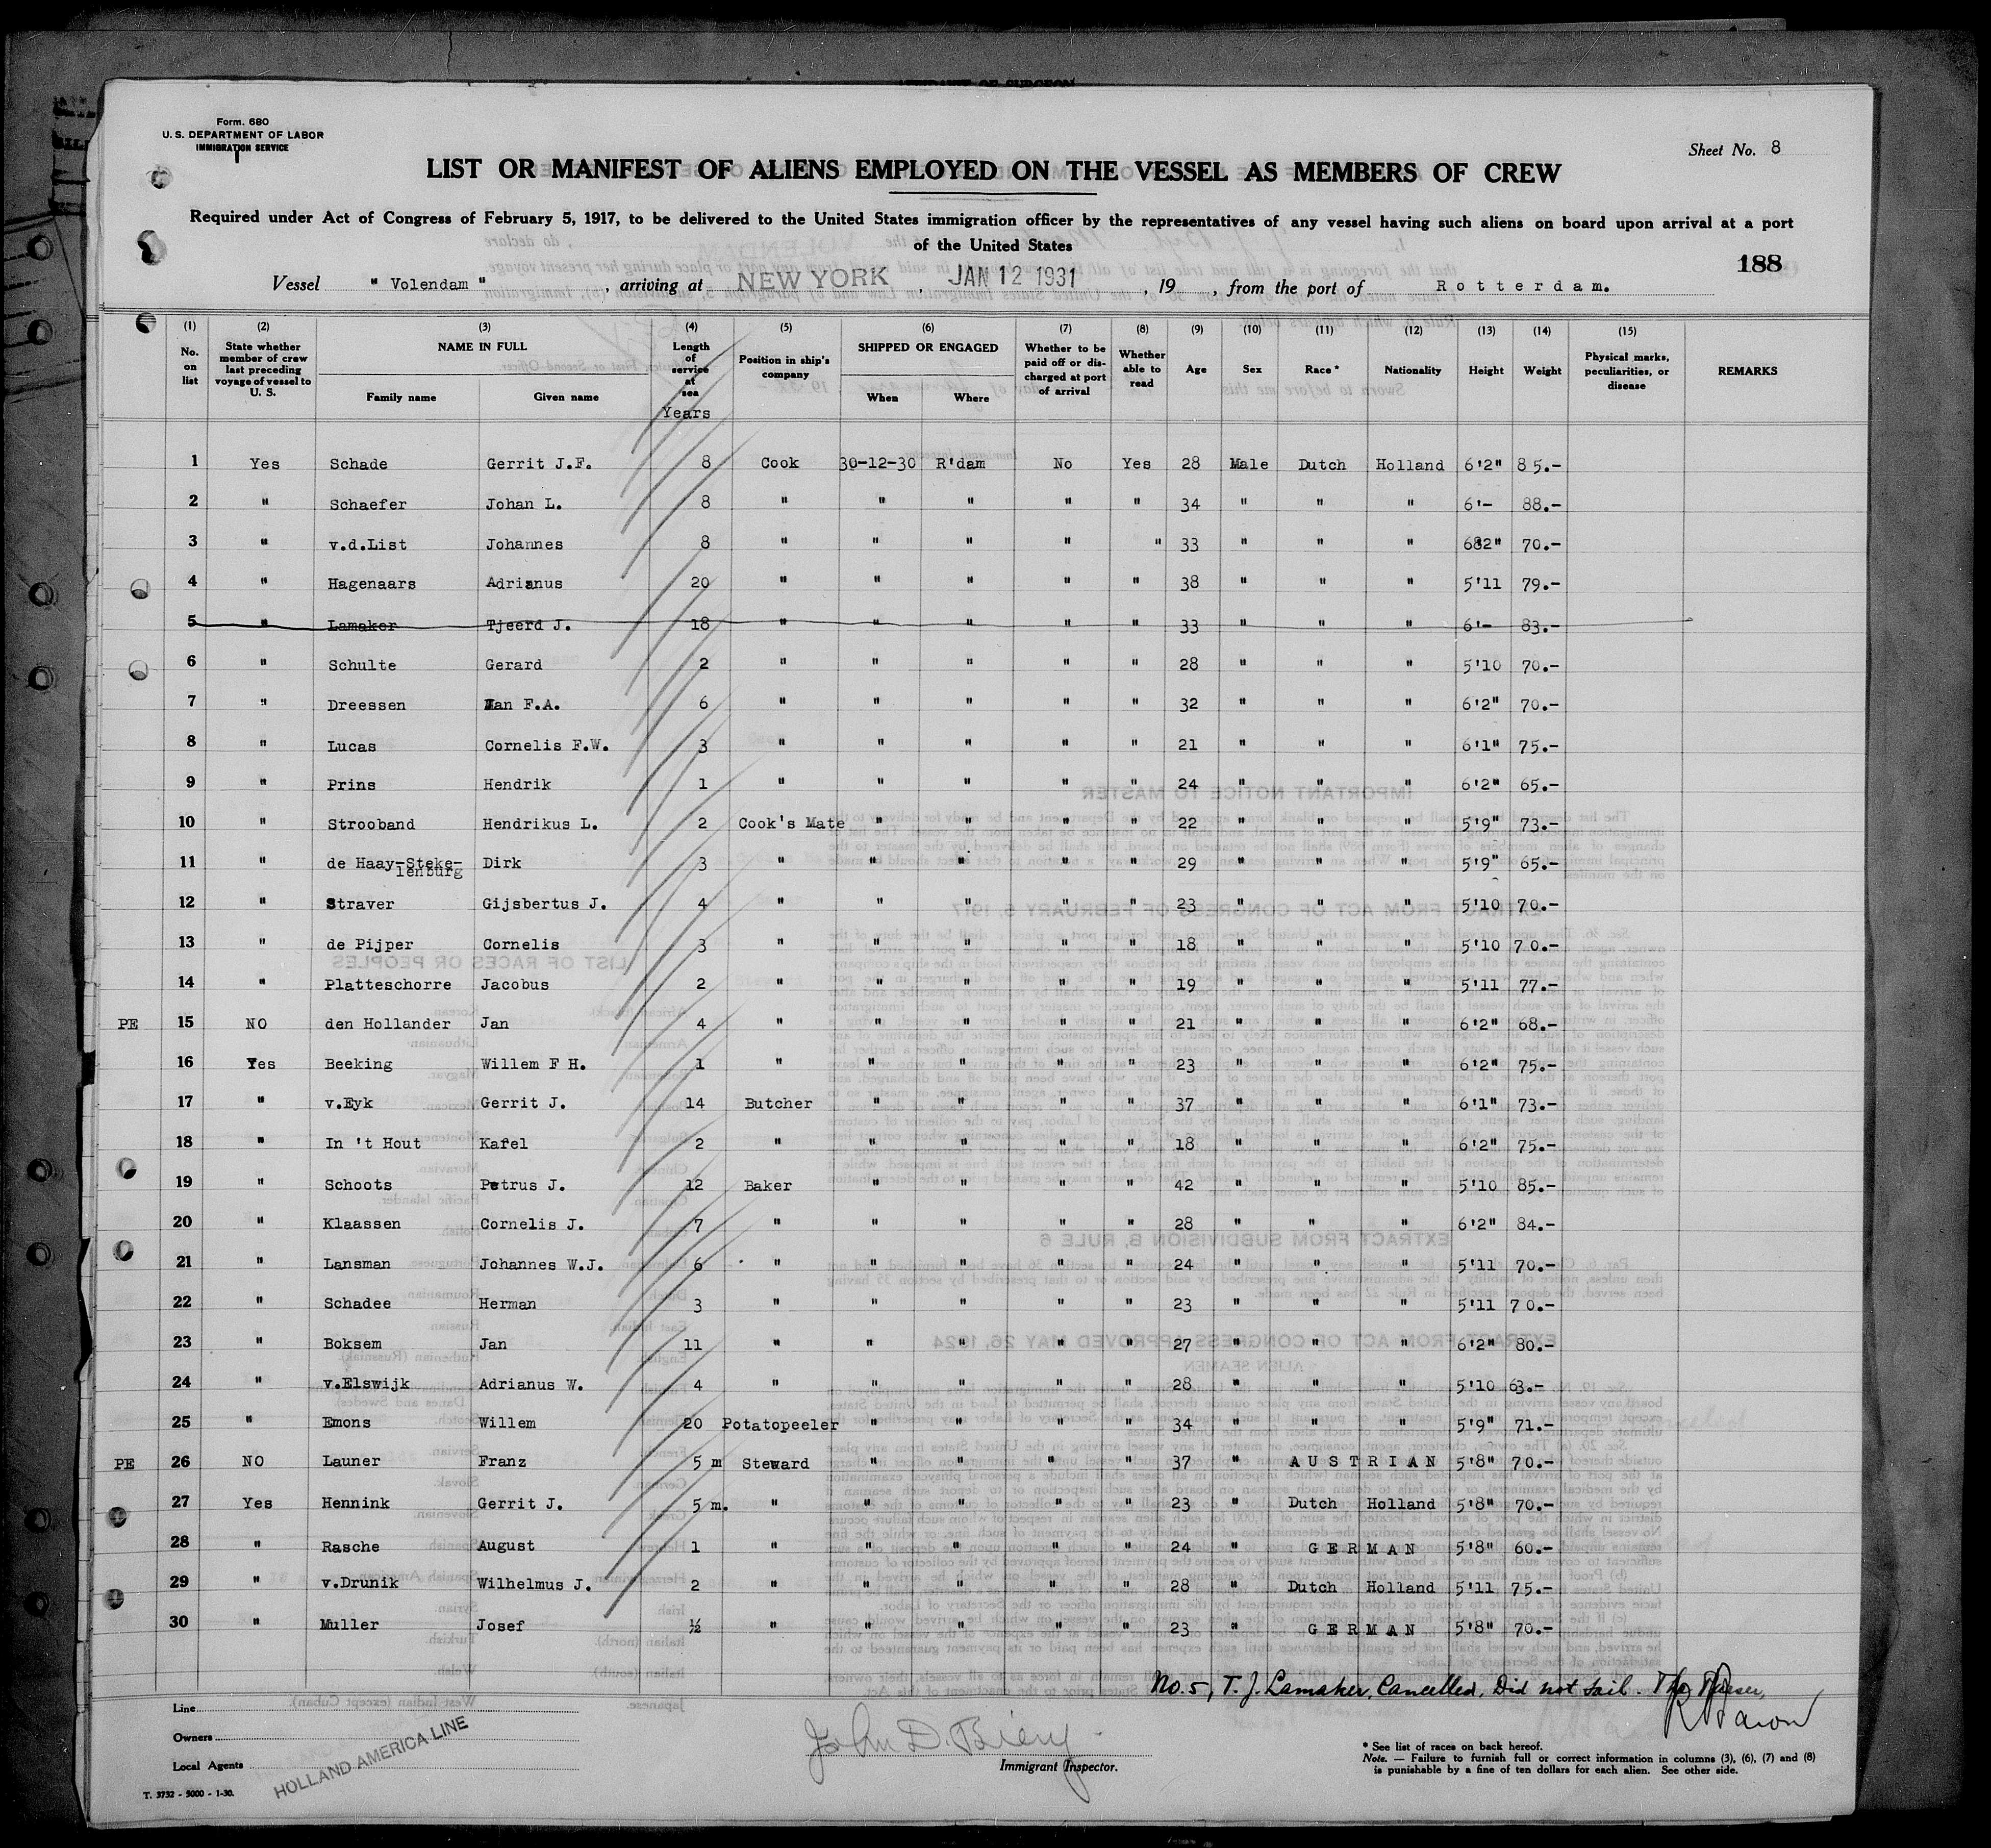 Form. 680
U. S. DEPARTMENT OF LABOR
IMMIGRATION SERVICE
Sheet No. 8
LIST OR MANIFEST OF ALIENS EMPLOYED ON THE VESSEL AS MEMBERS OF CREW
Required under Act of Congress of February 5, 1917, to be delivered to the United States immigration officer by the representatives of any vessel having such aliens on board upon arrival at a port
of the United States
188
Vessel " Volendam " , arriving at NEW YORK , JAN 12 1931 , 19 , from the port of Rotterdam.
(1) (2) (3) (4) (5) (6) (7) (8) (9) (10) (11) (12) (13) (14) (15)
No. on list State whether member of crew last preceding voyage of vessel to U. S. NAME IN FULL Family name Given name Length of service at sea Years Position in ship's company SHIPPED OR ENGAGED When Where Whether to be paid off or discharged at port of arrival Whether able to read Age Sex Race * Nationality Height Weight Physical marks, peculiarities, or disease REMARKS
1 Yes Schade Gerrit J.F. 8 Cook 30-12-30 R'dam No Yes 28 Male Dutch Holland 6'2" 85.-
2 " Schaefer Johan L. 8 " " " " " 34 " " " 6'- 88.-
3 " v.d.List Johannes 8 " " " " " 33 " " " 682" 70.-
4 " Hagenaars Adrianus 20 " " " " " 38 " " " 5'11 79.-
5 " Lamaker Tjeerd J. 18 " " " " " 33 " " " 6'- 83.-
6 " Schulte Gerard 2 " " " " " 28 " " " 5'10 70.-
7 " Dreessen Jan F.A. 6 " " " " " 32 " " " 6'2" 70.-
8 " Lucas Cornelis F.W. 3 " " " " " 21 " " " 6'1" 75.-
9 " Prins Hendrik 1 " " " " " 24 " " " 6'2" 65.-
10 " Strooband Hendrikus L. 2 Cook's Mate " " " " 22 " " " 5'9" 73.-
11 " de Haay-Steke-lenburg Dirk 3 " " " " " 29 " " " 5'9" 65.-
12 " Straver Gijsbertus J. 4 " " " " " 23 " " " 5'10 70.-
13 " de Pijper Cornelis 3 " " " " " 18 " " " 5'10 70.-
14 " Platteschorre Jacobus 2 " " " " " 19 " " " 5'11 77.-
PE 15 NO den Hollander Jan 4 " " " " " 21 " " " 6'2" 68.-
16 Yes Beeking Willem F H. 1 " " " " " 23 " " " 6'2" 75.-
17 " v.Eyk Gerrit J. 14 Butcher " " " " 37 " " " 6'1" 73.-
18 " In 't Hout Karel 2 " " " " " 18 " " " 6'2" 75.-
19 " Schoots Petrus J. 12 Baker " " " " 42 " " " 5'10 85.-
20 " Klaassen Cornelis J. 7 " " " " " 28 " " " 6'2" 84.-
21 " Lansman Johannes W.J. 6 " " " " " 24 " " " 5'11 70.-
22 " Schadee Herman 3 " " " " " 23 " " " 5'11 70.-
23 " Boksem Jan 11 " " " " " 27 " " " 6'2" 80.-
24 " v.Elswijk Adrianus W. 4 " " " " " 28 " " " 5'10 63.-
25 " Emons Willem 20 Potatopeeler " " " " 34 " " " 5'9" 71.-
PE 26 NO Launer Franz 5 m Steward " " " " 37 " AUSTRIAN 5'8" 70.-
27 Yes Hennink Gerrit J. 5 m. " " " " " 23 " Dutch Holland 5'8" 70.-
28 " Rasche August 1 " " " " " 24 " GERMAN 5'8" 60.-
29 " v.Drunik Wilhelmus J. 2 " " " " " 28 " Dutch Holland 5'11 75.-
30 " Muller Josef ½ " " " " " 23 " GERMAN 5'8" 70.-
No. 5, T. J. Lamaker, Cancelled, Did not sail.
Line
Owners
Local Agents
HOLLAND AMERICA LINE
John D. Bieny
Immigrant Inspector.
* See list of races on back hereof.
Note. — Failure to furnish full or correct information in columns (3), (6), (7) and (8)
is punishable by a fine of ten dollars for each alien. See other side.
T. 3732 - 5000 - 1-30.